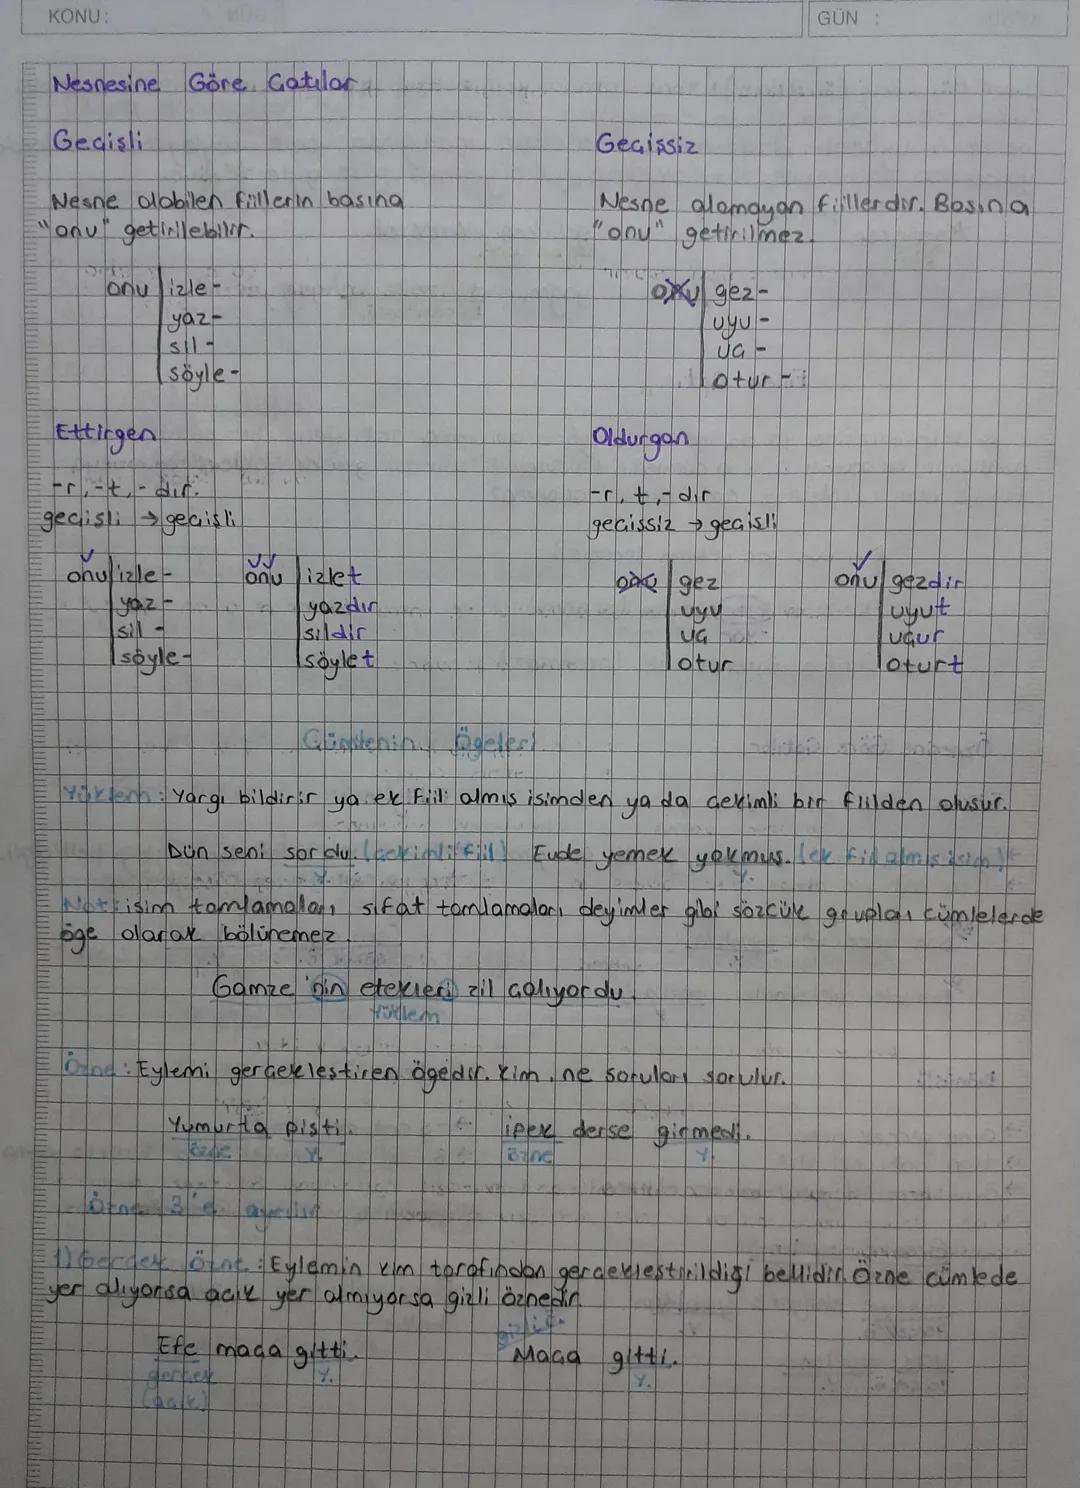 KONU:
GÜN :
Nesnesine Göre Çatılar
Geçişli
Nesne alabilen fiillerin başına
"onu" getirilebilir.
onu izle-
yaz-
sil-
söyle-
Geçişsiz
Nesne alamayan fiillerdir. Başına
"onu" getirilmez.
onu gez-
uyu-
uç-
otur-
Ettirgen
-r, -t, -dır.
geçişli → geçişli
onu izle-
yaz-
sil-
söyle-
onu izlet
yazdır
sildir
söylet
Oldurgan
-r, t, -dır
geçissiz → geçişli
onu gez
uyu
uç
otur
onu gezdir
uyut
uçur
oturt
Cümlenin Ögeleri
Yüklem: Yargı bildirir ya ek fiil almış isimden ya da çekimli bir fiilden oluşur.
Dün seni sordu. (çekimli fiil) Evde yemek yokmuş. (ek fiil almış isim)
Y. Y.
Not: isim tamlamaları, sıfat tamlamaları, deyimler gibi sözcük grupları cümlelerde
öge olarak bölünemez.
Gamze'nin etekleri zil çalıyordu.
Yüklem
Özne: Eylemi gerçekleştiren ögedir. Kim, ne soruları sorulur.
Yumurta pişti. ipek derse girmedi.
özne Y. özne Y.
Özne 3'e ayrılır
1) Gerçek Özne: Eylemin kim tarafından gerçekleştirildiği bellidir. Özne cümlede
yer alıyorsa açık yer almıyorsa gizli öznedir.
gizli ö.
Efe maça gitti. Maça gitti.
gerçek Y. Y.
(açık)